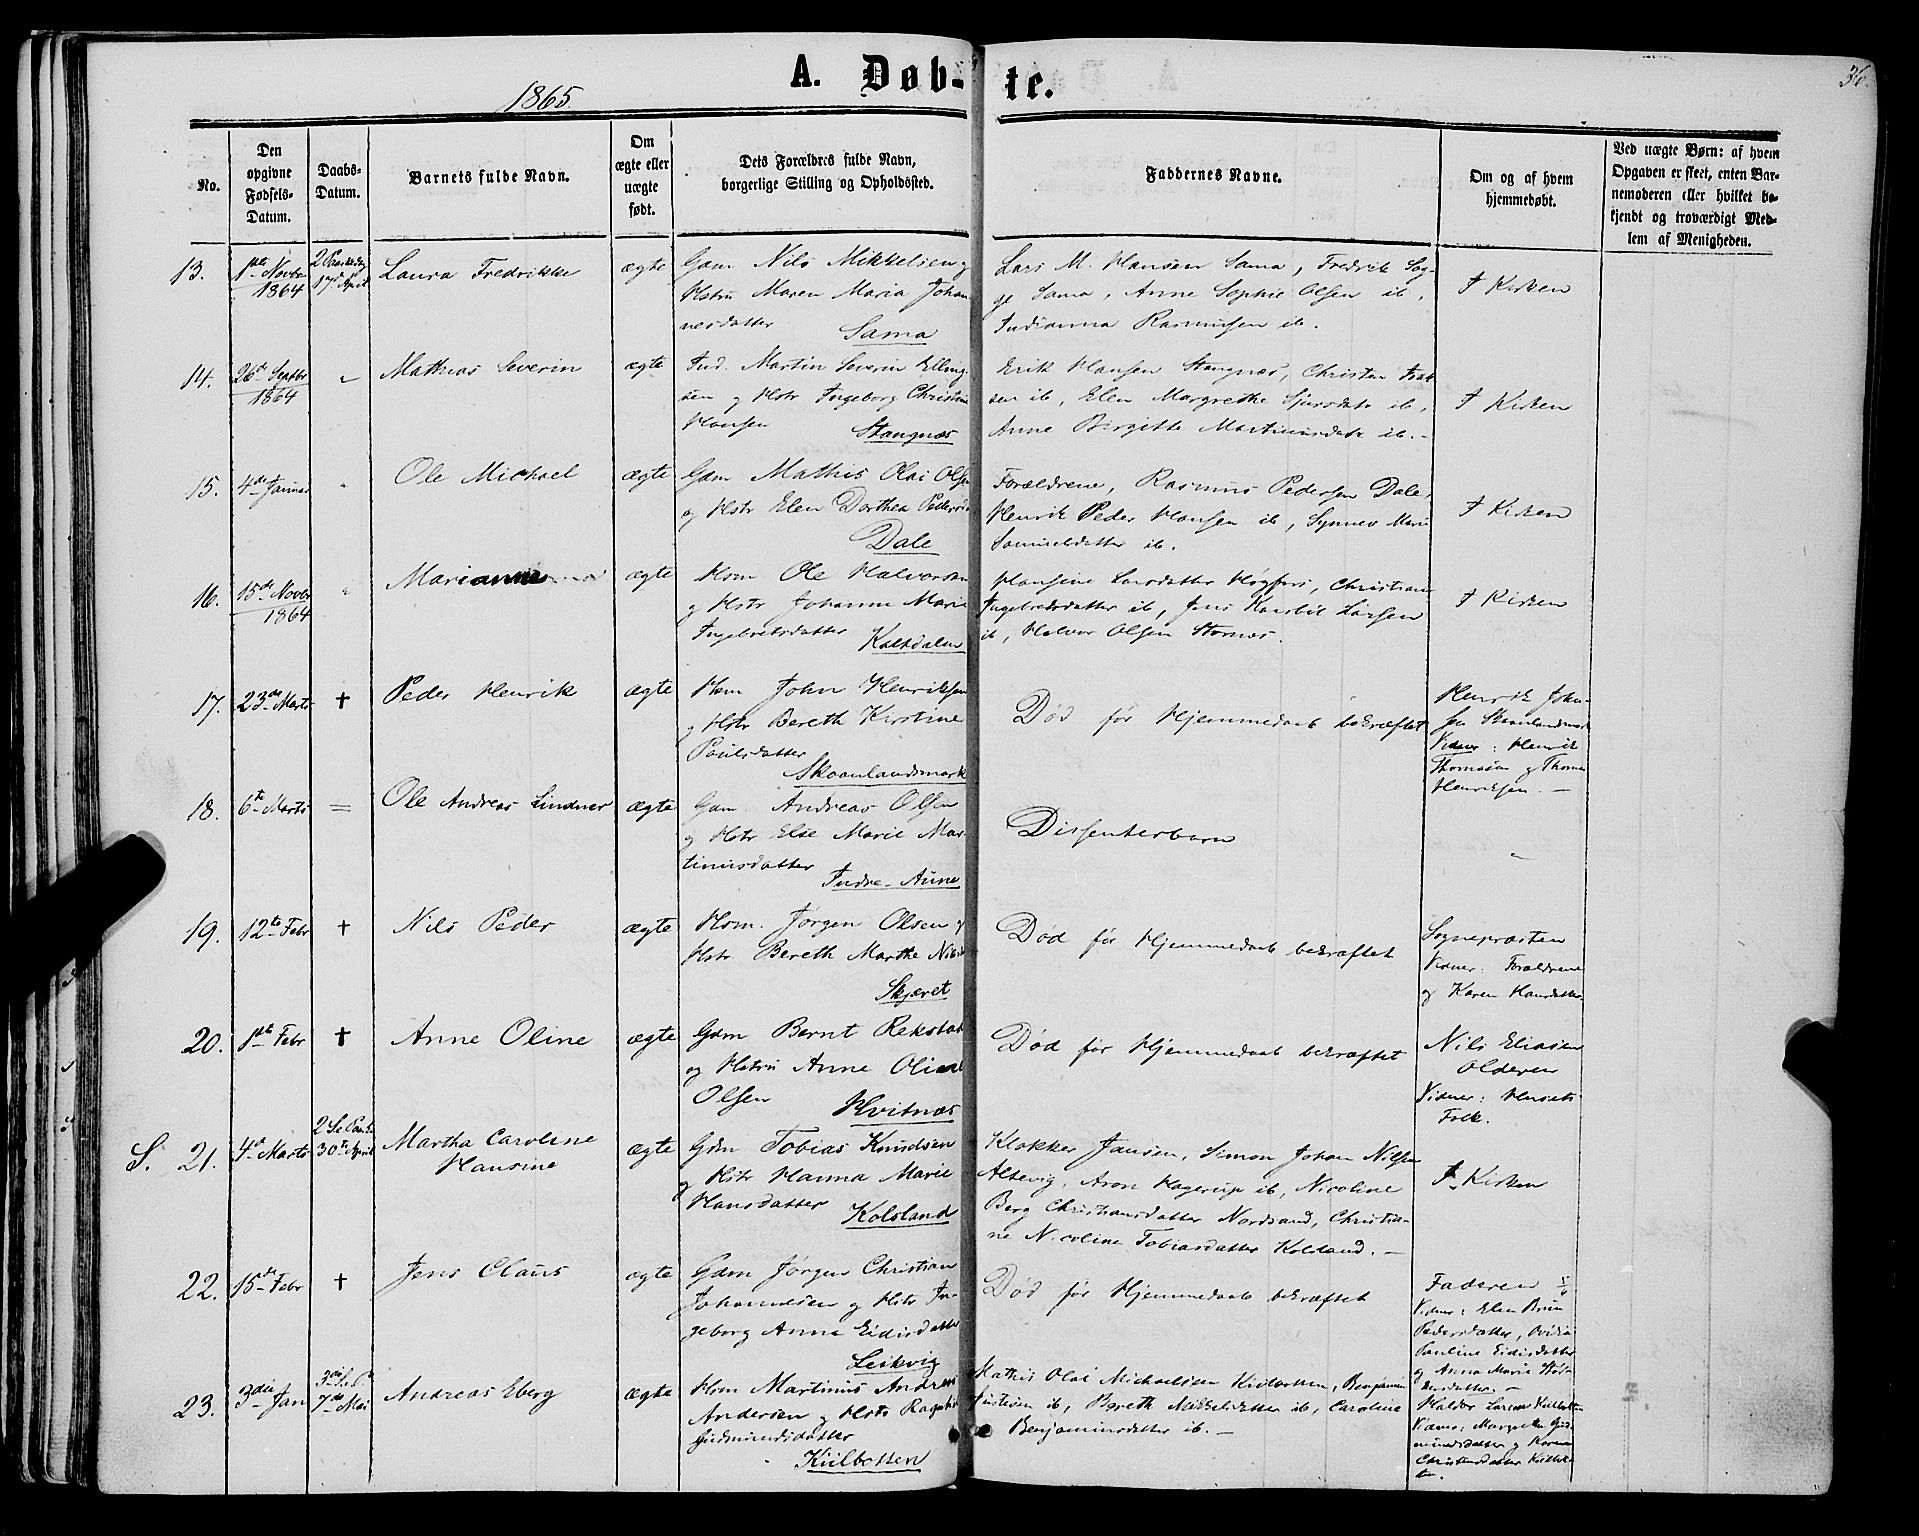 36.
A. Døb- te.
1865.
No.
Den opgivne Fødsels-Datum.
Daabs-Datum.
Barnets fulde Navn.
Om ægte eller uægte født.
Dets Forældres fulde Navn, borgerlige Stilling og Opholdssted.
Faddernes Navne.
Om og af hvem hjemmedøbt.
Ved uægte Børn: af hvem Opgaven er skeet, enten Barnemoderen eller hvilket bekjendt og troværdigt Medlem af Menigheden.
13. 1ste Novbr 1864 17de April Laura Fredrikke ægte
Gdm Nils Mikkelsen og
Hstru Maren Maria Johan-
nesdatter Sama
Lars M. Hansen Sama, Fredrik Sag-
ge Sama, Anne Sophie Olsen ib,
Indianna Rasmusen ib.
I Kirken
14. 26de Septbr 1864 " Mathias Severin ægte
Ind. Martin Severin Elling-
sen og Hstr Ingeborg Christine
Hansen Stangnæs
Erik Hansen Stangnæs, Christen Isak-
sen ib, Elen Margrethe Sjursdatr ib,
Anne Birgitte Martinusdatr ib.-
I Kirken
15. 4de Januar " Ole Michael ægte
Gdm Mathis Olai Olsen
og Hstr Elen Dorthea Pedersd
Dale
Forældrene, Rasmus Pedersen Dale,
Henrik Peder Hansen ib, Synnev Marie
Samuelsdatter ib.
I Kirken
16. 15de Novbr 1864 " Marianne ægte
Hsm Ole Halvorsen
og Hstr Johanne Marie
Ingebretsdatter Kaltdalen
Hansine Larsdatter Høgfors, Christiane
Ingebretsdatter ib, Jens Larsen
ib, Halvor Olsen Stornæs.
I Kirken
17. 23de Marts † Peder Henrik ægte
Hsm John Henriksen
og Hstr Bereth Kirstine
Poulsdatter
Skaanlandsmark
Død før Hjemmedaab bekræftet
Henrik John-
sen Skaanlandsmark
Vidner: Henrik
Thomasen og Thomas
Henriksen. -
18. 6te Marts = Ole Andreas Lindner ægte
Gdm. Andreas Olsen
og Hstr Else Marie Mar-
tinusdatter
Indre-Aune
Dissenterbarn
"
19. 12te Febr † Nils Peder ægte
Hsm. Jørgen Olsen og
Hstr Bereth Marthe Nilsd
Skjæret
Død før Hjemmedaab bekræftet
Sognepræsten
Vidner: Forældrene
og Karen Hansdatter
20. 1ste Febr † Anne Oline ægte
Gdm Bernt Rekstad
og Hstru Anne Oline
Olsen Hvitnæs
Død før Hjemmedaab bekræftet
Nils Eliasen
Olderen
Vidner: Husets
Folk.
S. 21. 4de Marts 30te April Martha Caroline
Hansine ægte
Gdm Tobias Knudsen
og Hstr Hanna Marie
Hansdatter Kolsland
Klokker Jansen, Simon Johan Nilsen
Altevig, Aron Hagerup ib, Nicoline
Berg Christiansdatter Nordsand, Christia-
ne Nicoline Tobiasdatter Kolsland. -
I Kirken
22. 15de Febr † Jens Claus ægte
Gdm Jørgen Christian
Johannesen og Hstr In-
geborg Anna Eidisdatter
Leikvig
Død før Hjemmedaab bekræftet
Faderen
Vidner: Elen Brun
Pedersdatter,
Pauline Eidisdatter
og Anna Marie
23. 3die Jan 7de Mai Andreas Eberg ægte
Hsm Martinus Andreas
Andersen og Hstr Ragnhild
Gudmundsdatter
Kiilbotten
Mathis Olai Michaelsen Kiilbotten, Benjamin
Justisen ib, Bereth Mikkelsdatter ib, Caroline
Benjaminsdatter ib. -
Haldor Larsen Kiilbotten
Vidner: Margrethe Gud-
mundsdatter og Karen
Christensdatter Kiilbot-
ten.